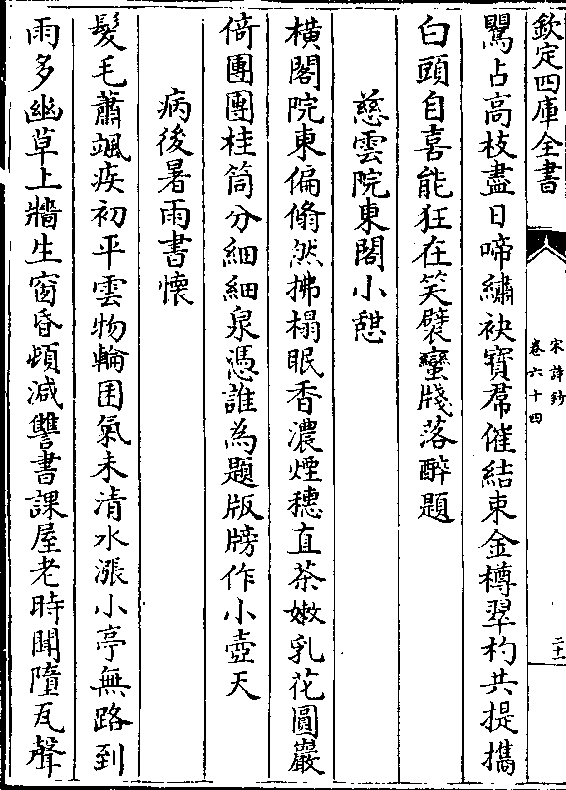 欽定四庫全書
宋詩鈔
卷六十四
二十一
鸎占高枝盡日啼繡袂寶帬催結束金樽翠杓共提攜
白頭自喜能狂在笑襞蠻牋落醉題
慈雲院東閣小憩
橫閣院東偏翛然拂榻眠香濃煙穗直茶嫩乳花圓巖
倚團團桂筒分細細泉憑誰為題版牓作小壺天
病後暑雨書懷
髮毛蕭颯疾初平雲物輪囷氣未清水漲小亭無路到
雨多幽草上牆生窗昏頓減讐書課屋老時聞墮瓦聲